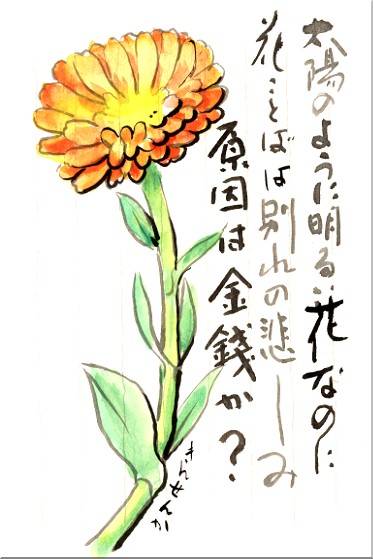 太陽のように明るい花なのに
花ことばは別れの悲しみ
原因は金銭か？
きんせんか